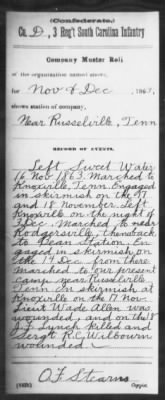 (Confederate.)
Co. D, 3 Reg't South Carolina Infantry
Company Muster Roll
of the organization named above,
for Nov & Dec, 1863,
shows station of company,
Near Russelville, Tenn
RECORD OF EVENTS.
Left Sweet Water
16 Nov. 1863. Marched to
Knoxville, Tenn. Engaged
in skirmish on the 17
and 18 November. Left
Knoxville on the night of
3 Dec. Marched to near
Rodgersville, thence back
to Bean Station. En-
gaged in skirmish on
the 14 Dec. From there
marched to our present
camp near Russelville,
Tenn. In skirmish at
Knoxville on the 17 Nov.
Lieut Wade Allen was
wounded, and on the 18
J. J. Lynch killed and
Sergt R. C. Wilbourn
wounded.
O. F. Stearns
Copyist.